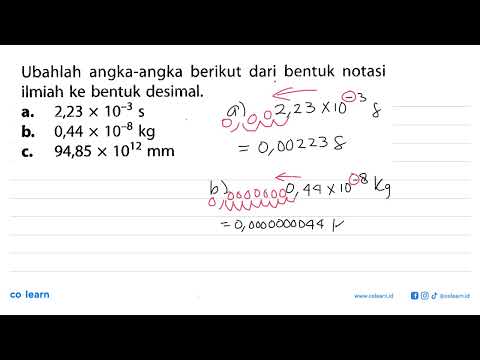 Ubahlah angka-angka berikut dari bentuk notasi
ilmiah ke bentuk desimal.
a. 2,23 × 10⁻³ s
b. 0,44 × 10⁻⁸ kg
c. 94,85 × 10¹² mm
a) 0,002,23 × 10⁻³ s
= 0,00223 s
b) 0,00000000,44 × 10⁻⁸ Kg
= 0,0000000044 k
co learn
www.colearn.id
@colearn.id